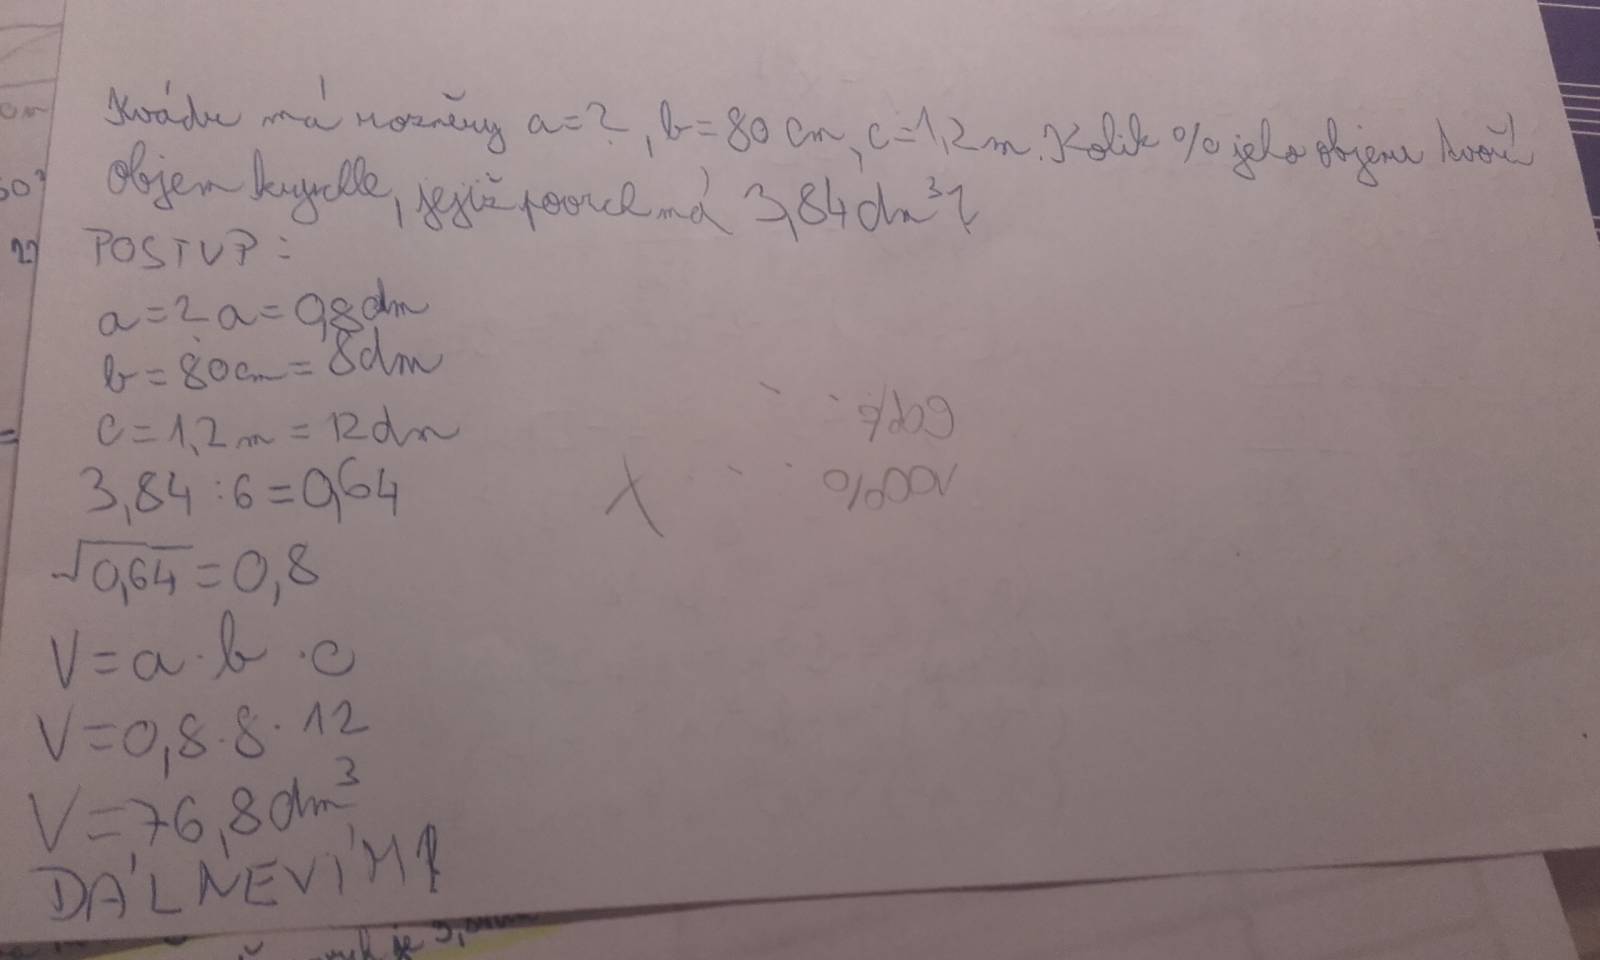 Kvádr má rozměry a=?, b=80 cm, c=1,2 m. Kolik % jeho objemu tvoří
objem krychle, jejíž povrch má 3,84 dm³?
POSTUP:
a=? a=0,8dm
b=80cm=8dm
c=1,2m=12dm
3,84:6=0,64
√0,64=0,8
V=a·b·c
V=0,8·8·12
V=76,8dm³
DÁL NEVÍM?